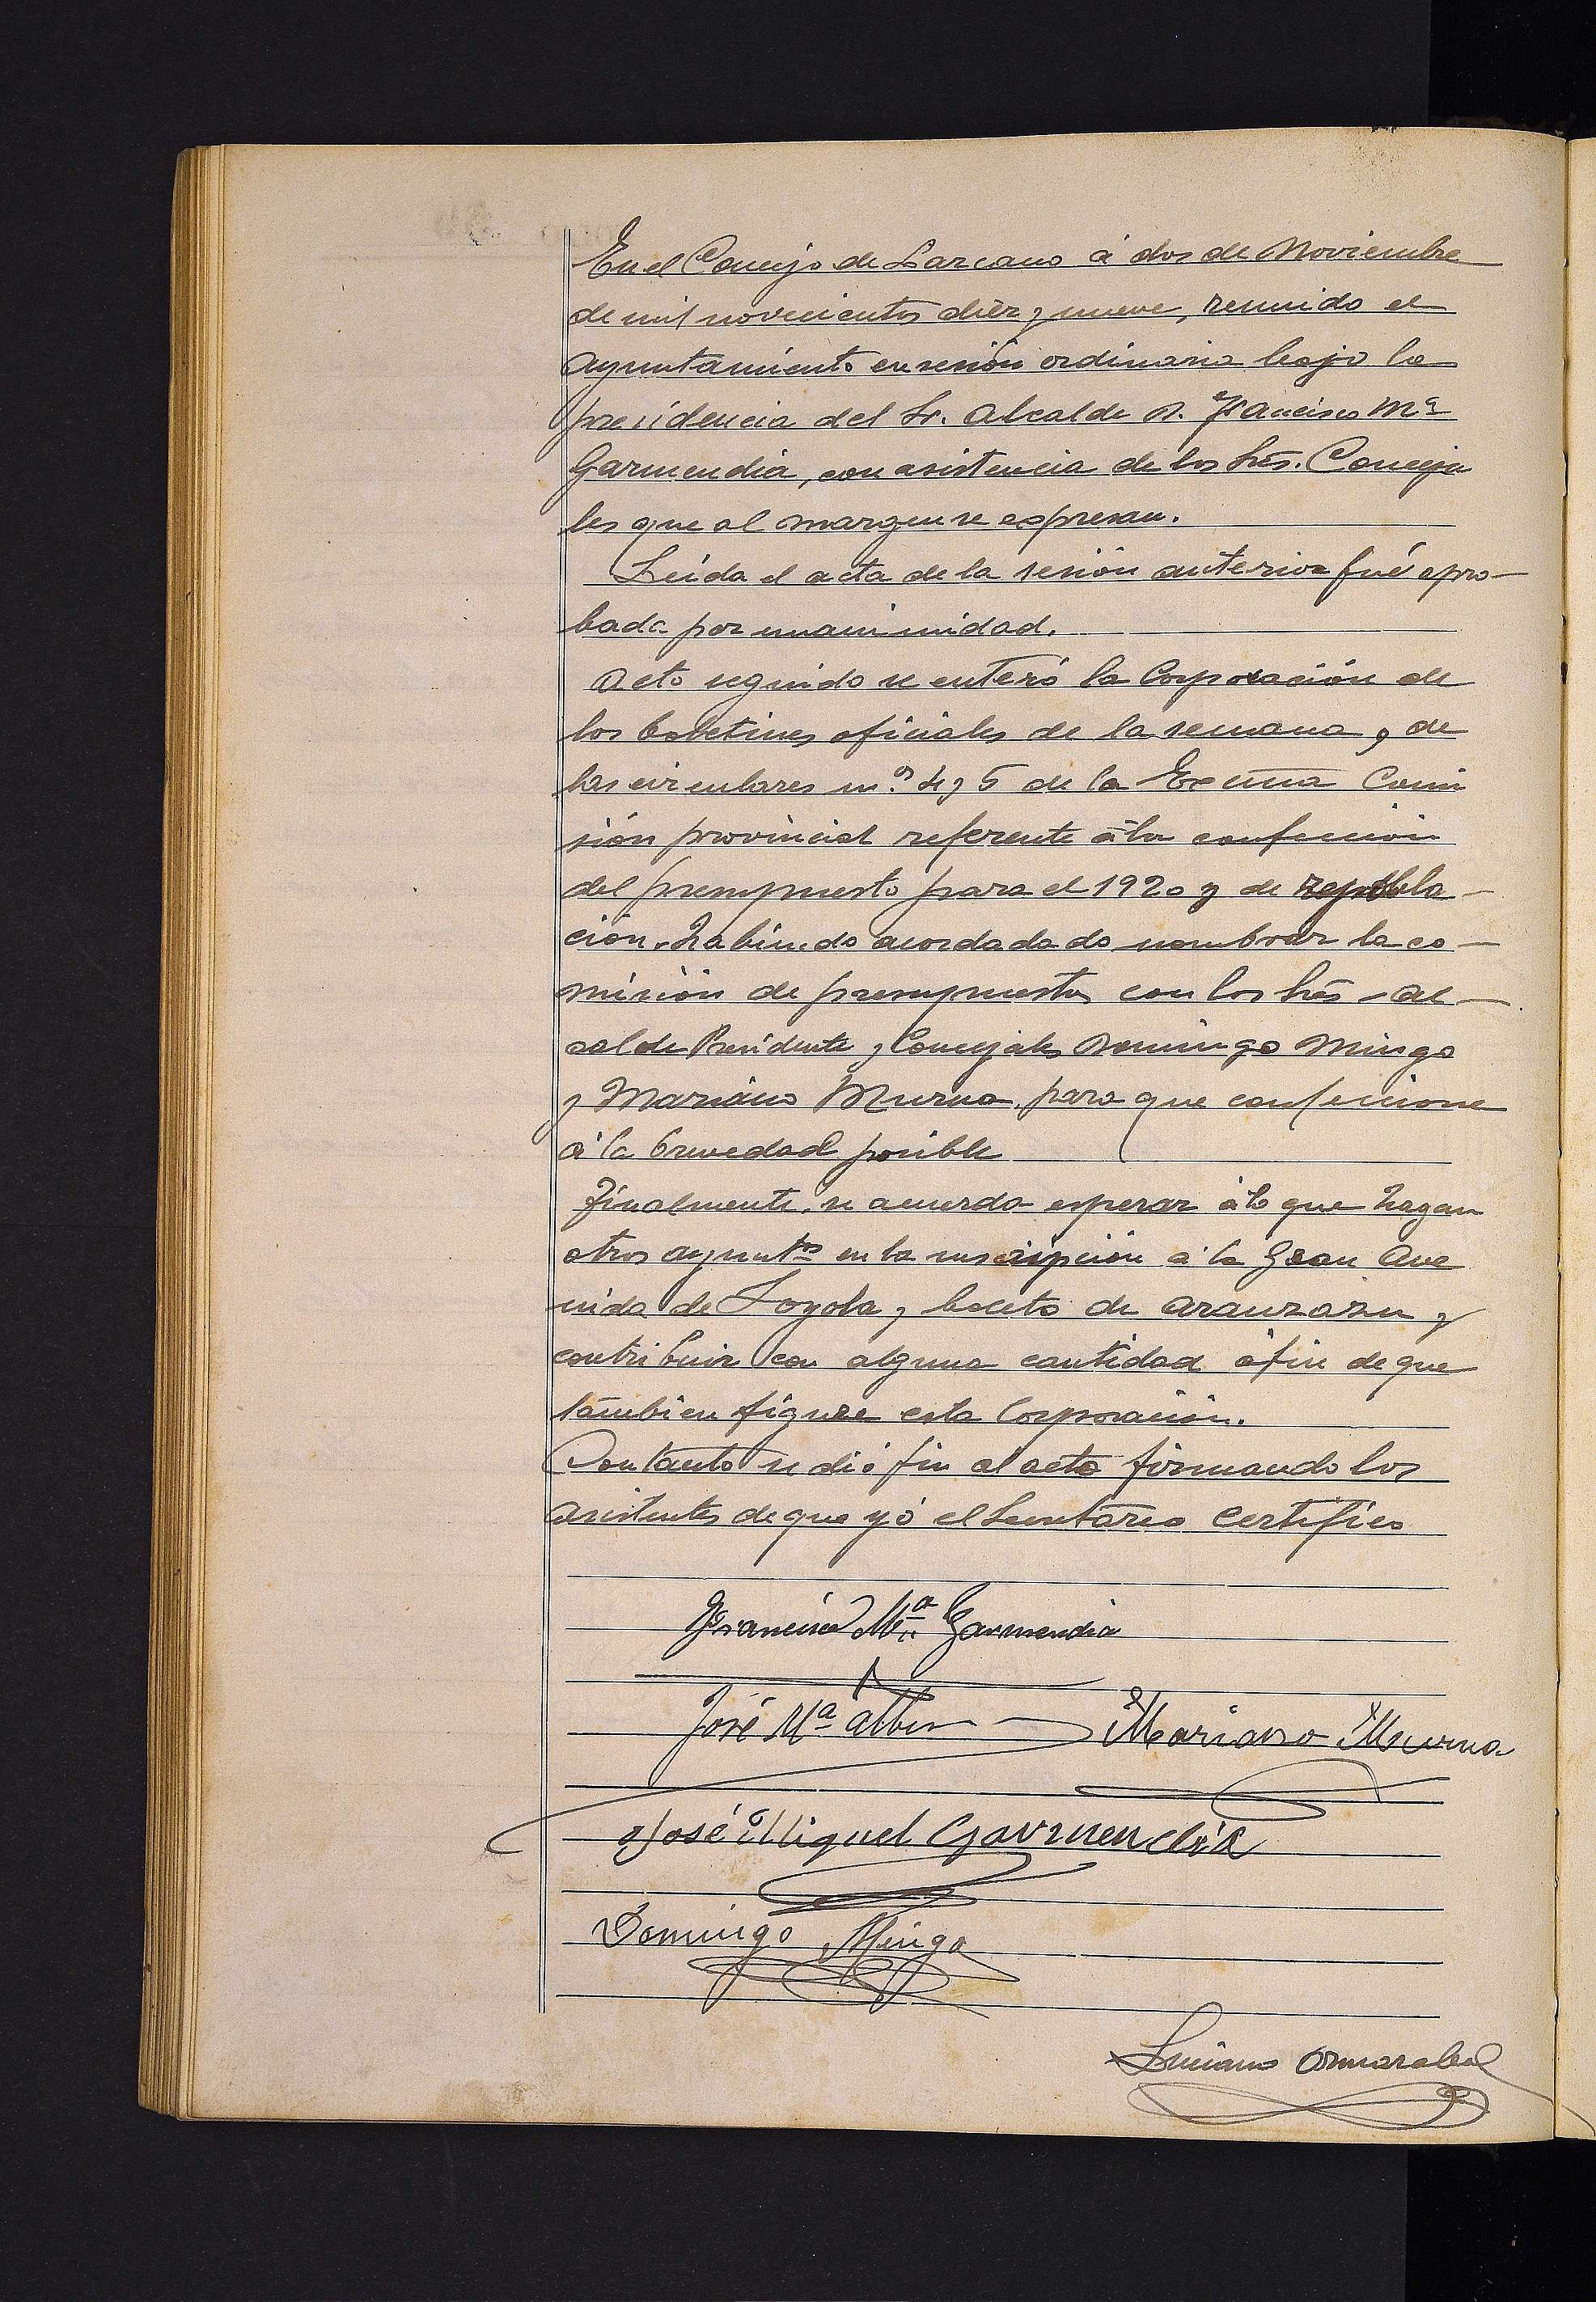 En el Concejo de Lazcano á dos de Noviembre
de mil novecientos diez y nueve, reunido el
Ayuntamiento en sesión ordinaria bajo la
presidencia del Sr. Alcalde D. Francisco Mª
Garmendia, con asistencia de los Srs. Conceja
les que al margen se espresan.
Leida el acta de la sesión anterior fué apro-
bada por unanimidad.
Acto seguido se enteró la Corporación de
los boletines oficiales de la semana y de
las circulares nº 4 y 5 de la Excma Comi
sión provincial referente á la confección
del presupuesto para el 1920 y de repobla-
ción. habiendo acordada do nombrar la co-
misión de presupuestos con los Srs Al-
calde Presidente y Concejales Domingo Mingo
y Mariano Murua para que confeccione
á la brevedad posible
Finalmente, se acuerda esperar á lo que hagan
otros ayuntos en la suscripción á la Gran Ave
nida de Loyola y boceto de Aranzazu y
contribuir con alguna cantidad á fin de que
tambien figure esta Corporación.
Con tanto se dió fin al acto firmando los
asistentes de que yó el Secretario Certifico
Francisco Mª Garmendia
José Mª Mariano Murua
José Miguel Garmendia
Domingo Mingo
Luciano Ormazabal